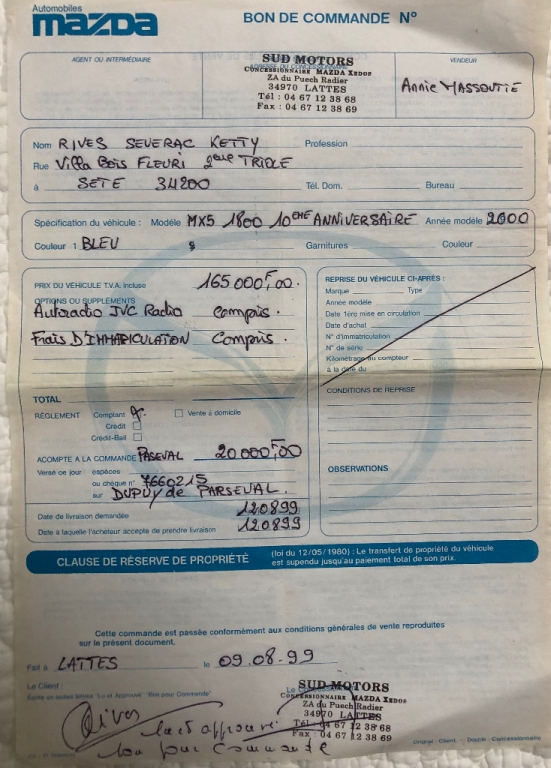 Automobiles
mazda
BON DE COMMANDE N°
AGENT OU INTERMÉDIAIRE
VENDEUR
SUD MOTORS
CONCESSIONNAIRE MAZDA XEDOS
ZA du Puech Radier
34970 LATTES
Tél : 04 67 12 38 68
Fax : 04 67 12 38 69
Annie MASSOUTIE
Nom RIVES SEVERAC KETTY Profession
Rue Villa Bois FLEURI 2ème TRIOLE
à SETE 34200 Tél. Dom. Bureau
Spécification du véhicule : Modèle MX5 1800 10EME ANNIVERSAIRE Année modèle 2000
Couleur 1 BLEU Garnitures Couleur
PRIX DU VÉHICULE T.V.A. incluse 165 000F,00.
OPTIONS OU SUPPLÉMENTS
Autoradio JVC Radio Compris.
Frais D'IMMARICULATION Compris.
TOTAL
RÈGLEMENT Comptant Vente à domicile
Crédit
Crédit-Bail
ACOMPTE A LA COMMANDE PASEVAL 20 000F,00
Versé ce jour espèces
ou chèque n° 7660215
sur DUPUY de PARSEVAL.
Date de livraison demandée 120899
Date à laquelle l'acheteur accepte de prendre livraison 120899
REPRISE DU VÉHICULE CI-APRÈS :
Marque Type
Année modèle
Date 1ère mise en circulation
Date d'achat
N° d'immatriculation
N° de série
Kilométrage au compteur
à la date du
CONDITIONS DE REPRISE
OBSERVATIONS
CLAUSE DE RÉSERVE DE PROPRIÉTÉ
(loi du 12/05/1980) : Le transfert de propriété du véhicule
est suspendu jusqu'au paiement total de son prix.
Cette commande est passée conformément aux conditions générales de vente reproduites
sur le présent document.
Fait à LATTES le 09.08.99
Le Client :
Écrire en toutes lettres "Lu et Approuvé" "Bon pour Commande"
SUD MOTORS
CONCESSIONNAIRE MAZDA XEDOS
ZA du Puech Radier
34970 LATTES
Tél : 04 67 12 38 68
Fax : 04 67 12 38 69
Rives
lu et approuvé
bon pour Commande
Original : Client - Double : Concessionnaire